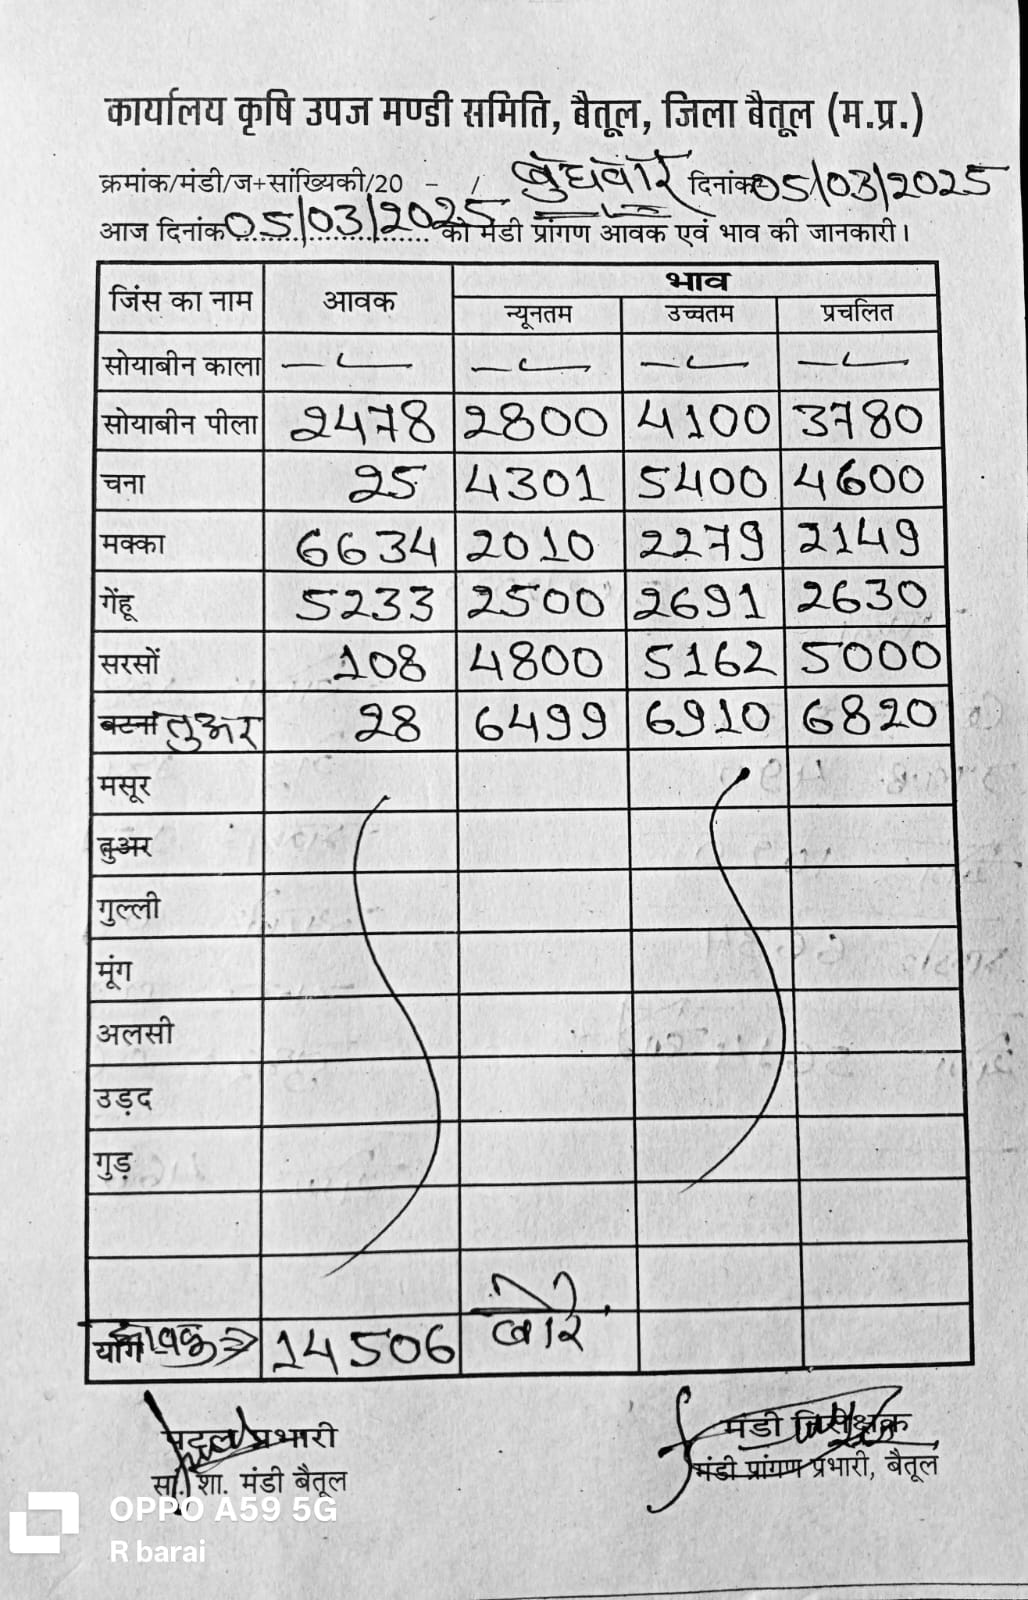 कार्यालय कृषि उपज मण्डी समिति, बैतूल, जिला बैतूल (म.प्र.)
क्रमांक/मंडी/ज+सांख्यिकी/20 - / बुधवार दिनांक 05/03/2025
आज दिनांक 05/03/2025 को मंडी प्रांगण आवक एवं भाव की जानकारी।
जिंस का नाम आवक भाव
न्यूनतम उच्चतम प्रचलित
सोयाबीन काला — — — —
सोयाबीन पीला 2478 2800 4100 3780
चना 25 4301 5400 4600
मक्का 6634 2010 2279 2149
गेंहू 5233 2500 2691 2630
सरसों 108 4800 5162 5000
बटना तुअर 28 6499 6910 6820
मसूर
तुअर
गुल्ली
मूंग
अलसी
उड़द
गुड़
योग आवक 14506 बोरे
प्रभारी मंडी
सां. शा. मंडी बैतूल मंडी प्रांगण प्रभारी, बैतूल
OPPO A59 5G
R barai